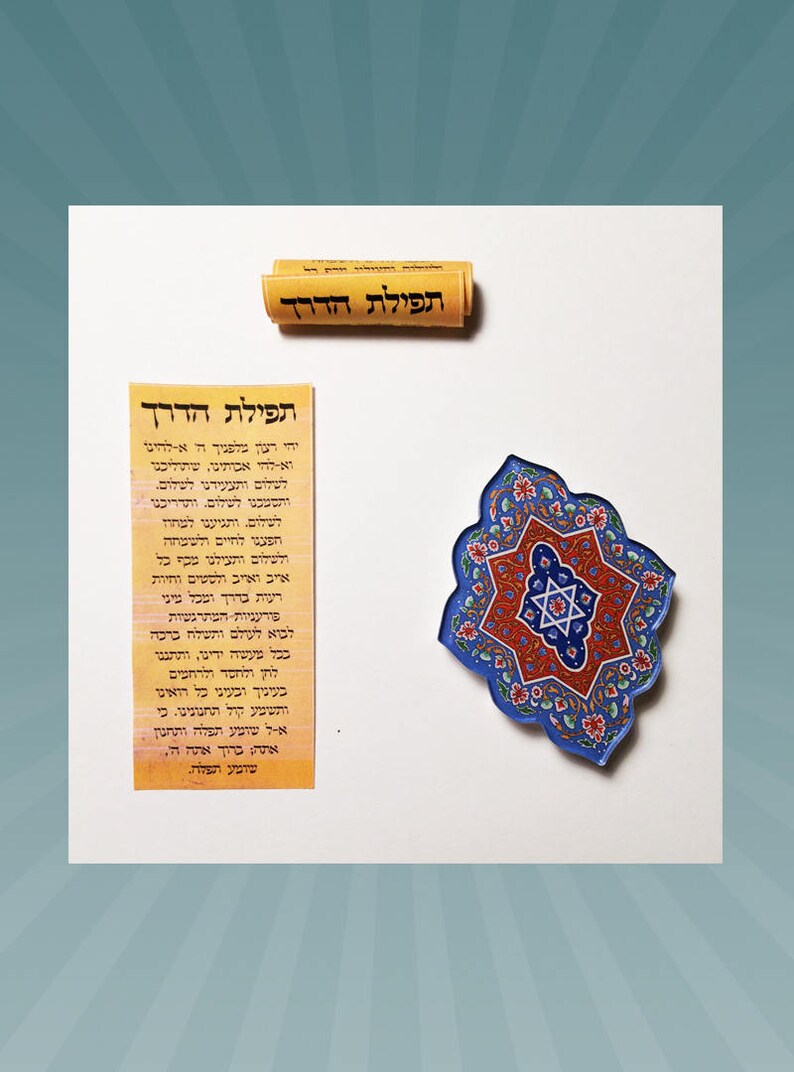 לשלום ותצילנו מכף כל
תפילת הדרך
תפילת הדרך
יהי רצון מלפניך ה' א-להינו
וא-להי אבותינו, שתוליכנו
לשלום ותצעידנו לשלום.
ותסמכנו לשלום. ותדריכנו
לשלום. ותגיענו למחוז
חפצנו לחיים ולשמחה
ולשלום ותצילנו מכף כל
אויב ואורב ולסטים וחיות
רעות בדרך ומכל מיני
פורעניות המתרגשות
לבוא לעולם ותשלח ברכה
בכל מעשה ידינו, ותתננו
לחן ולחסד ולרחמים
בעיניך ובעיני כל רואינו
ותשמע קול תחנונינו. כי
א-ל שומע תפלה ותחנון
אתה; ברוך אתה ה',
שומע תפלה.